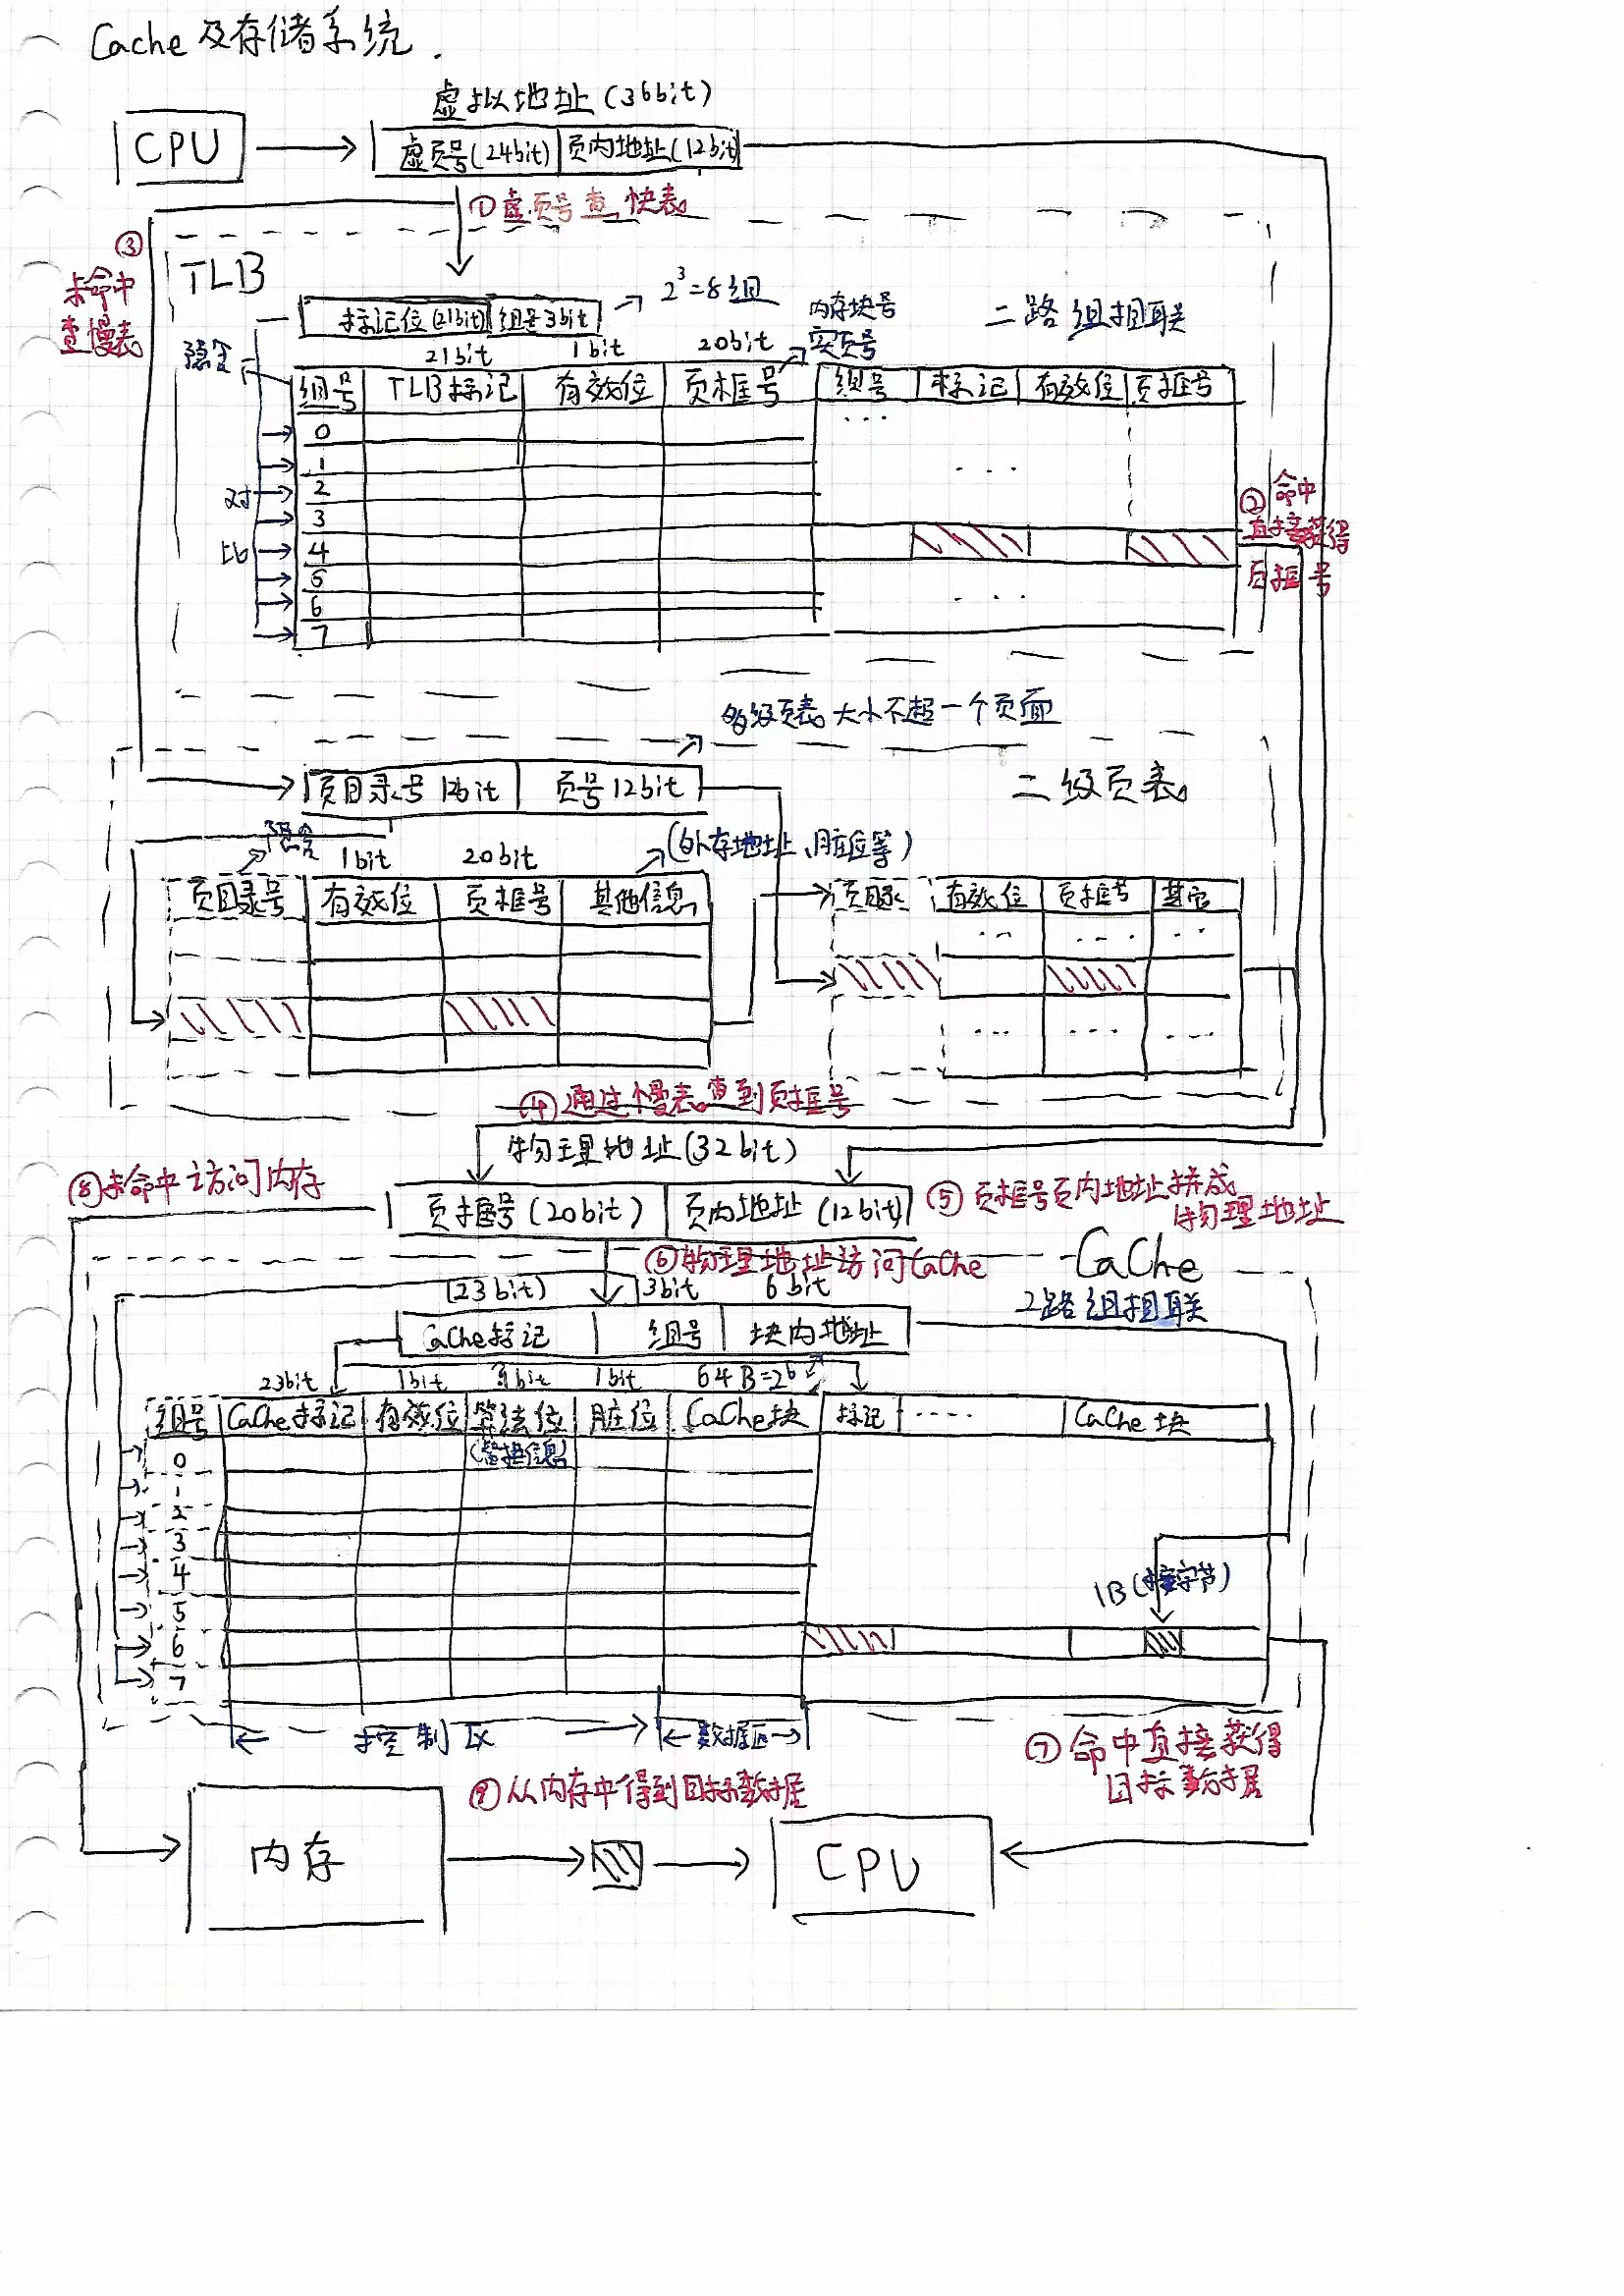 Cache及存储系统.
虚拟地址(36bit)
CPU
虚页号(24bit) 页内地址(12bit)
①虚页号查快表
③
未命中
查慢表
TLB
2³=8组
标记位(21bit) 组号3bit
内存块号
实页号
二路组相联
隐含
21bit 1bit 20bit
组号 TLB标记 有效位 页框号 组号 标记 有效位 页框号
0 ...
1 ...
2
3
4
5
6 ...
7
对
比
②命中
直接获得
页框号
多级页表大小不超一个页面
页目录号12bit 页号12bit
二级页表
隐含
1bit 20bit
(外存地址、脏位等)
页目录号 有效位 页框号 其他信息
页目录 有效位 页框号 其它
... ... ...
... ... ...
④通过慢表查到页框号
物理地址(32bit)
⑧未命中访问内存
页框号(20bit) 页内地址(12bit)
⑤页框号页内地址拼成
物理地址
⑥物理地址访问Cache
Cache
2路组相联
(23bit) 3bit 6bit
Cache标记 组号 块内地址
23bit 1bit 1bit 64B=2⁶
组号 Cache标记 有效位 算法位 脏位 Cache块 标记 .... Cache块
(替换信息)
0
1
2
3
4
5
6
7
1B(按字节)
控制区 数据区
⑦命中直接获得
目标数据
⑨从内存中得到目标数据
内存
CPU